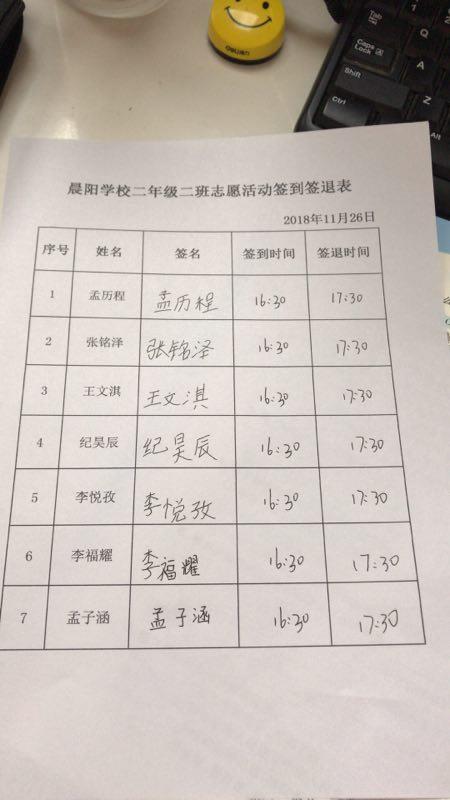 deli得力
Tab
Q
Caps Lock
A
Shift
Z
Ctrl
Alt
晨阳学校二年级二班志愿活动签到签退表
2018年11月26日
序号 姓名 签名 签到时间 签退时间
1 孟历程 孟历程 16:30 17:30
2 张铭泽 张铭泽 16:30 17:30
3 王文淇 王文淇 16:30 17:30
4 纪昊辰 纪昊辰 16:30 17:30
5 李悦孜 李悦孜 16:30 17:30
6 李福耀 李福耀 16:30 17:30
7 孟子涵 孟子涵 16:30 17:30